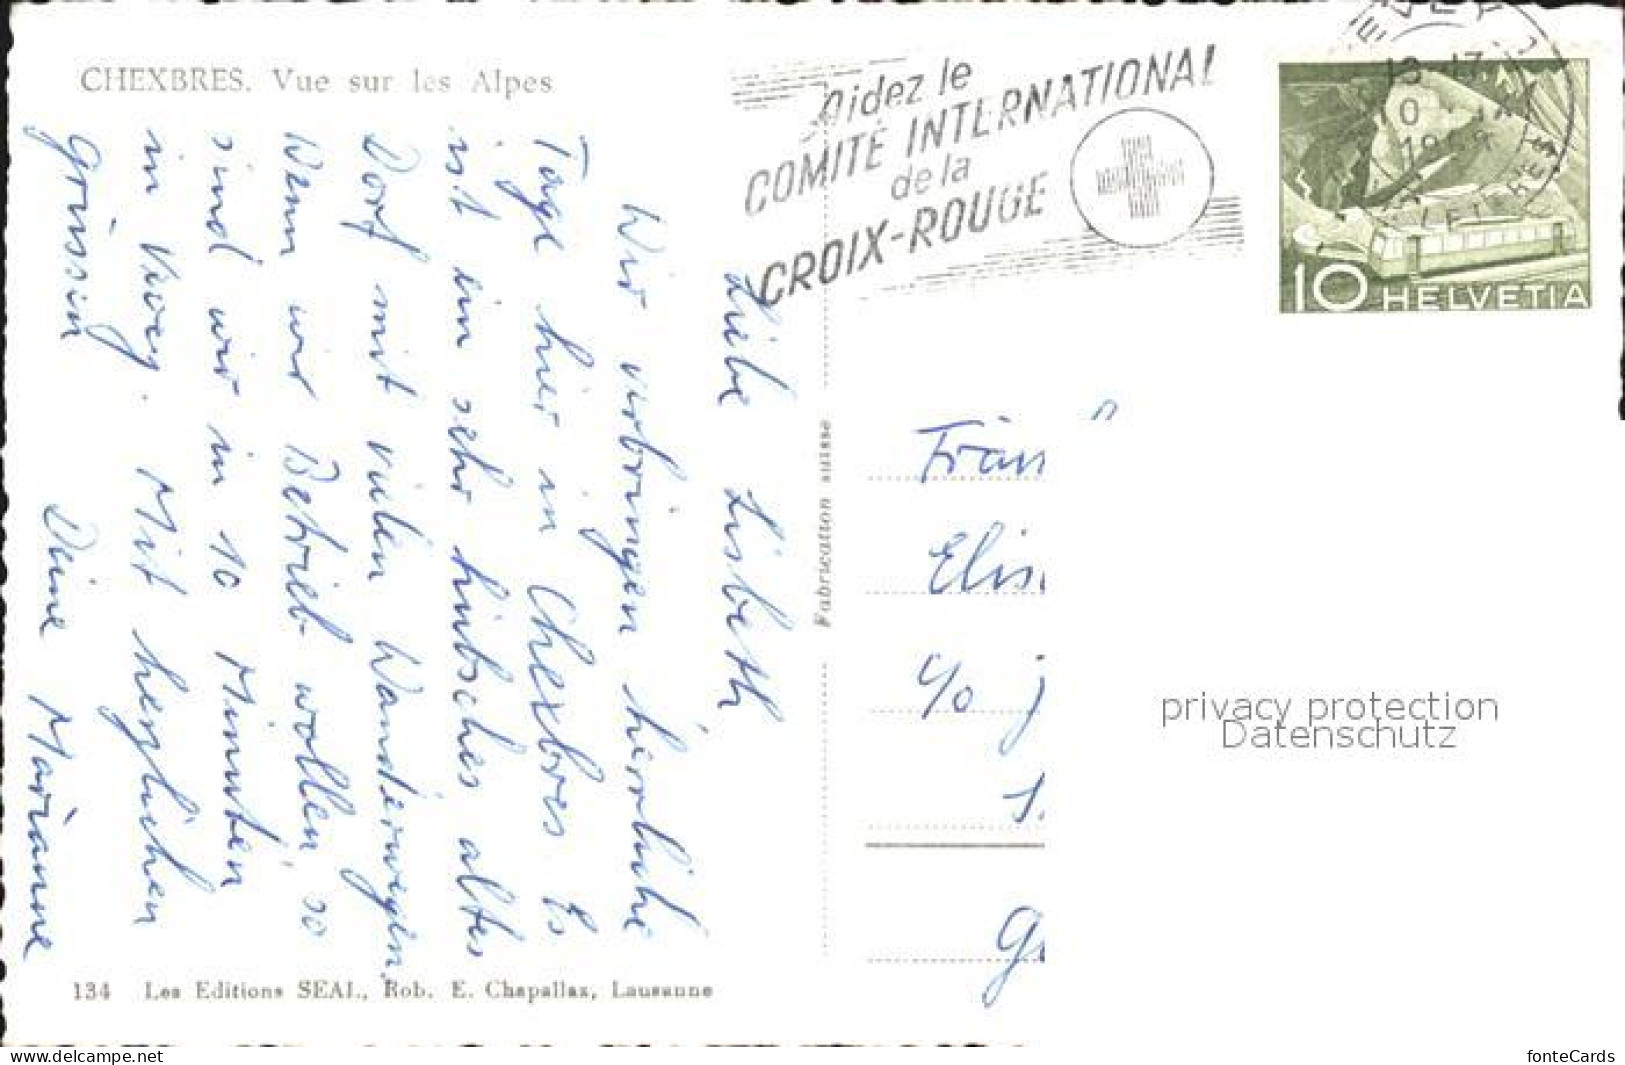 CHEXBRES. Vue sur les Alpes
Liebe Lisbeth
Wir verbringen herrliche
Tage hier in Chexbres. Es
ist ein sehr hübsches altes
Dorf mit vielen Wanderwegen.
Wenn wir Betrieb wollen, so
sind wir in 10 Minuten
in Vevey. Mit herzlichen
Grüssen
Deine Marianne
134 Les Editions SEAL, Rob. E. Chapallaz, Lausanne
Fabrication suisse
Aidez le
COMITÉ INTERNATIONAL
de la
CROIX-ROUGE
10 HELVETIA
Fräu
Elis
c/o J
G
privacy protection
Datenschutz
www.delcampe.net
fonteCards